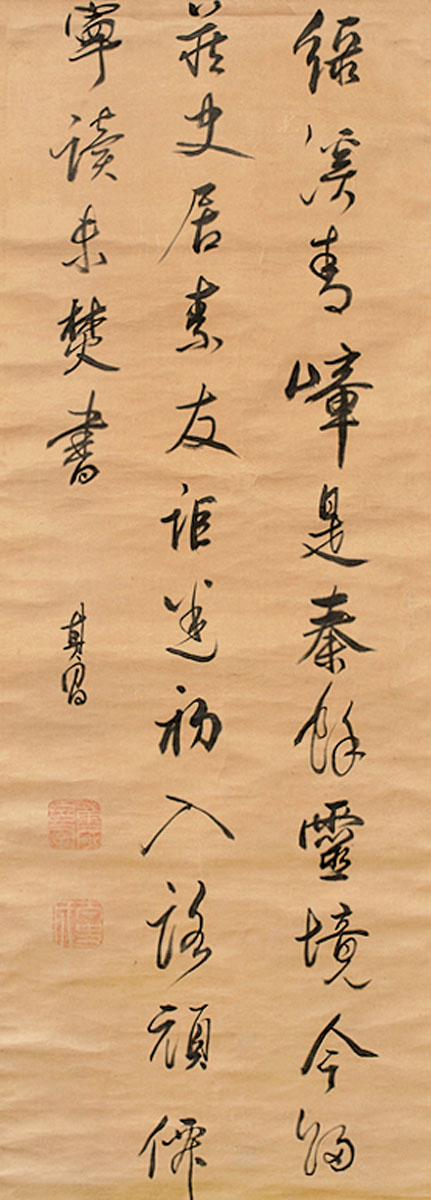 緑溪青嶂是秦餘靈境今歸
莊史居素友詎迷初入路頑仙
寧讀未焚書
其昌